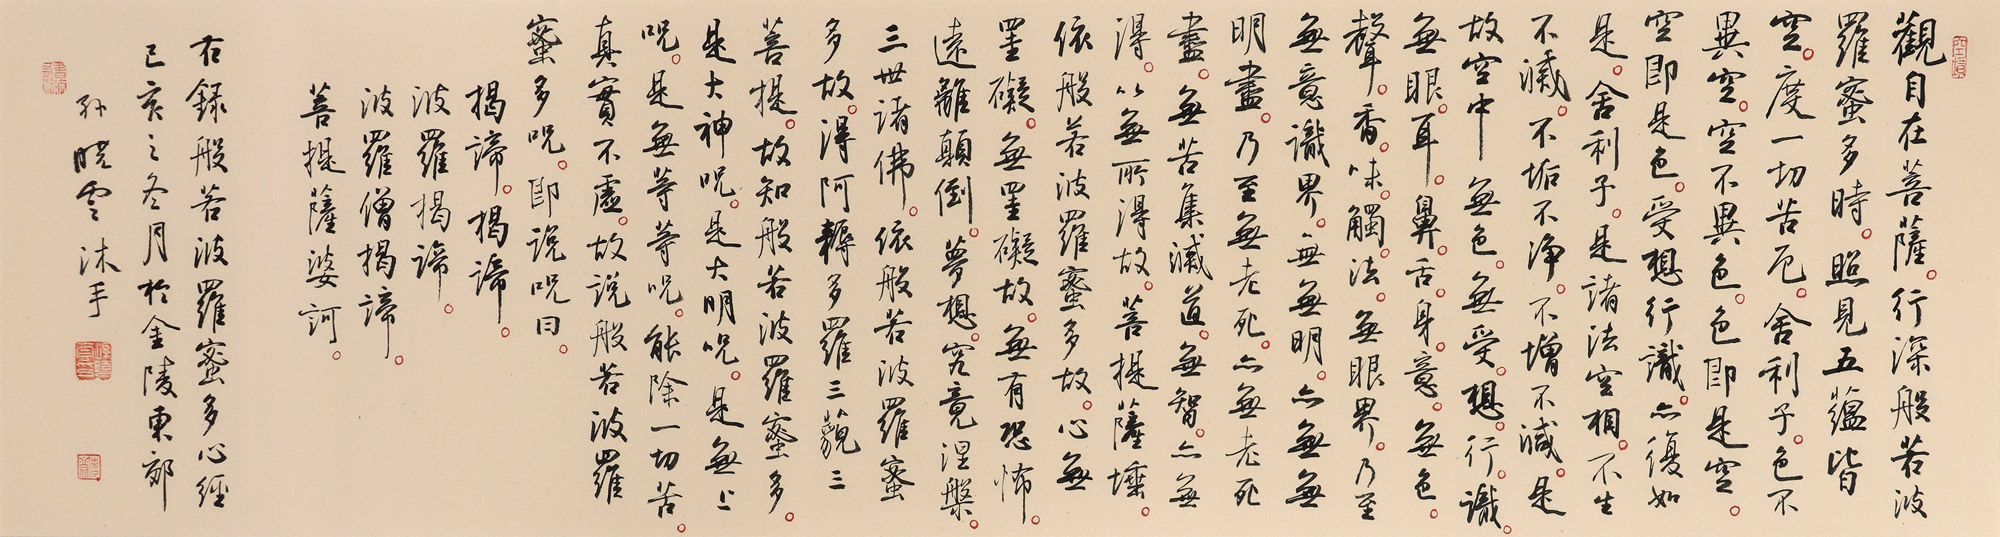 觀自在菩薩。行深般若波
羅蜜多時。照見五蘊皆
空。度一切苦厄。舍利子。色不
異空。空不異色。色即是空。
空即是色。受想行識。亦復如
是。舍利子。是諸法空相。不生
不滅。不垢不淨。不增不減。是
故空中無色。無受。想。行。識。
無眼。耳。鼻。舌。身。意。無色。
聲。香。味。觸。法。無眼界。乃至
無意識界。無無明。亦無無
明盡。乃至無老死。亦無老死
盡。無苦集滅道。無智。亦無
得。以無所得故。菩提薩埵。
依般若波羅蜜多故。心無
罣礙。無罣礙故。無有恐怖。
遠離顛倒。夢想。究竟涅槃。
三世諸佛。依般若波羅蜜
多故。得阿耨多羅三藐三
菩提。故知般若波羅蜜多。
是大神呪。是大明呪。是無上
呪。是無等等呪。能除一切苦。
真實不虛。故說般若波羅
蜜多呪。即說呪曰。
揭諦。揭諦。
波羅揭諦。
波羅僧揭諦。
菩提薩婆訶。
右錄般若波羅蜜多心經
己亥之冬月於金陵東郊
孫曉雲沐手